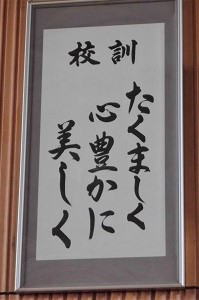 校訓
たくましく
心豊かに
美しく